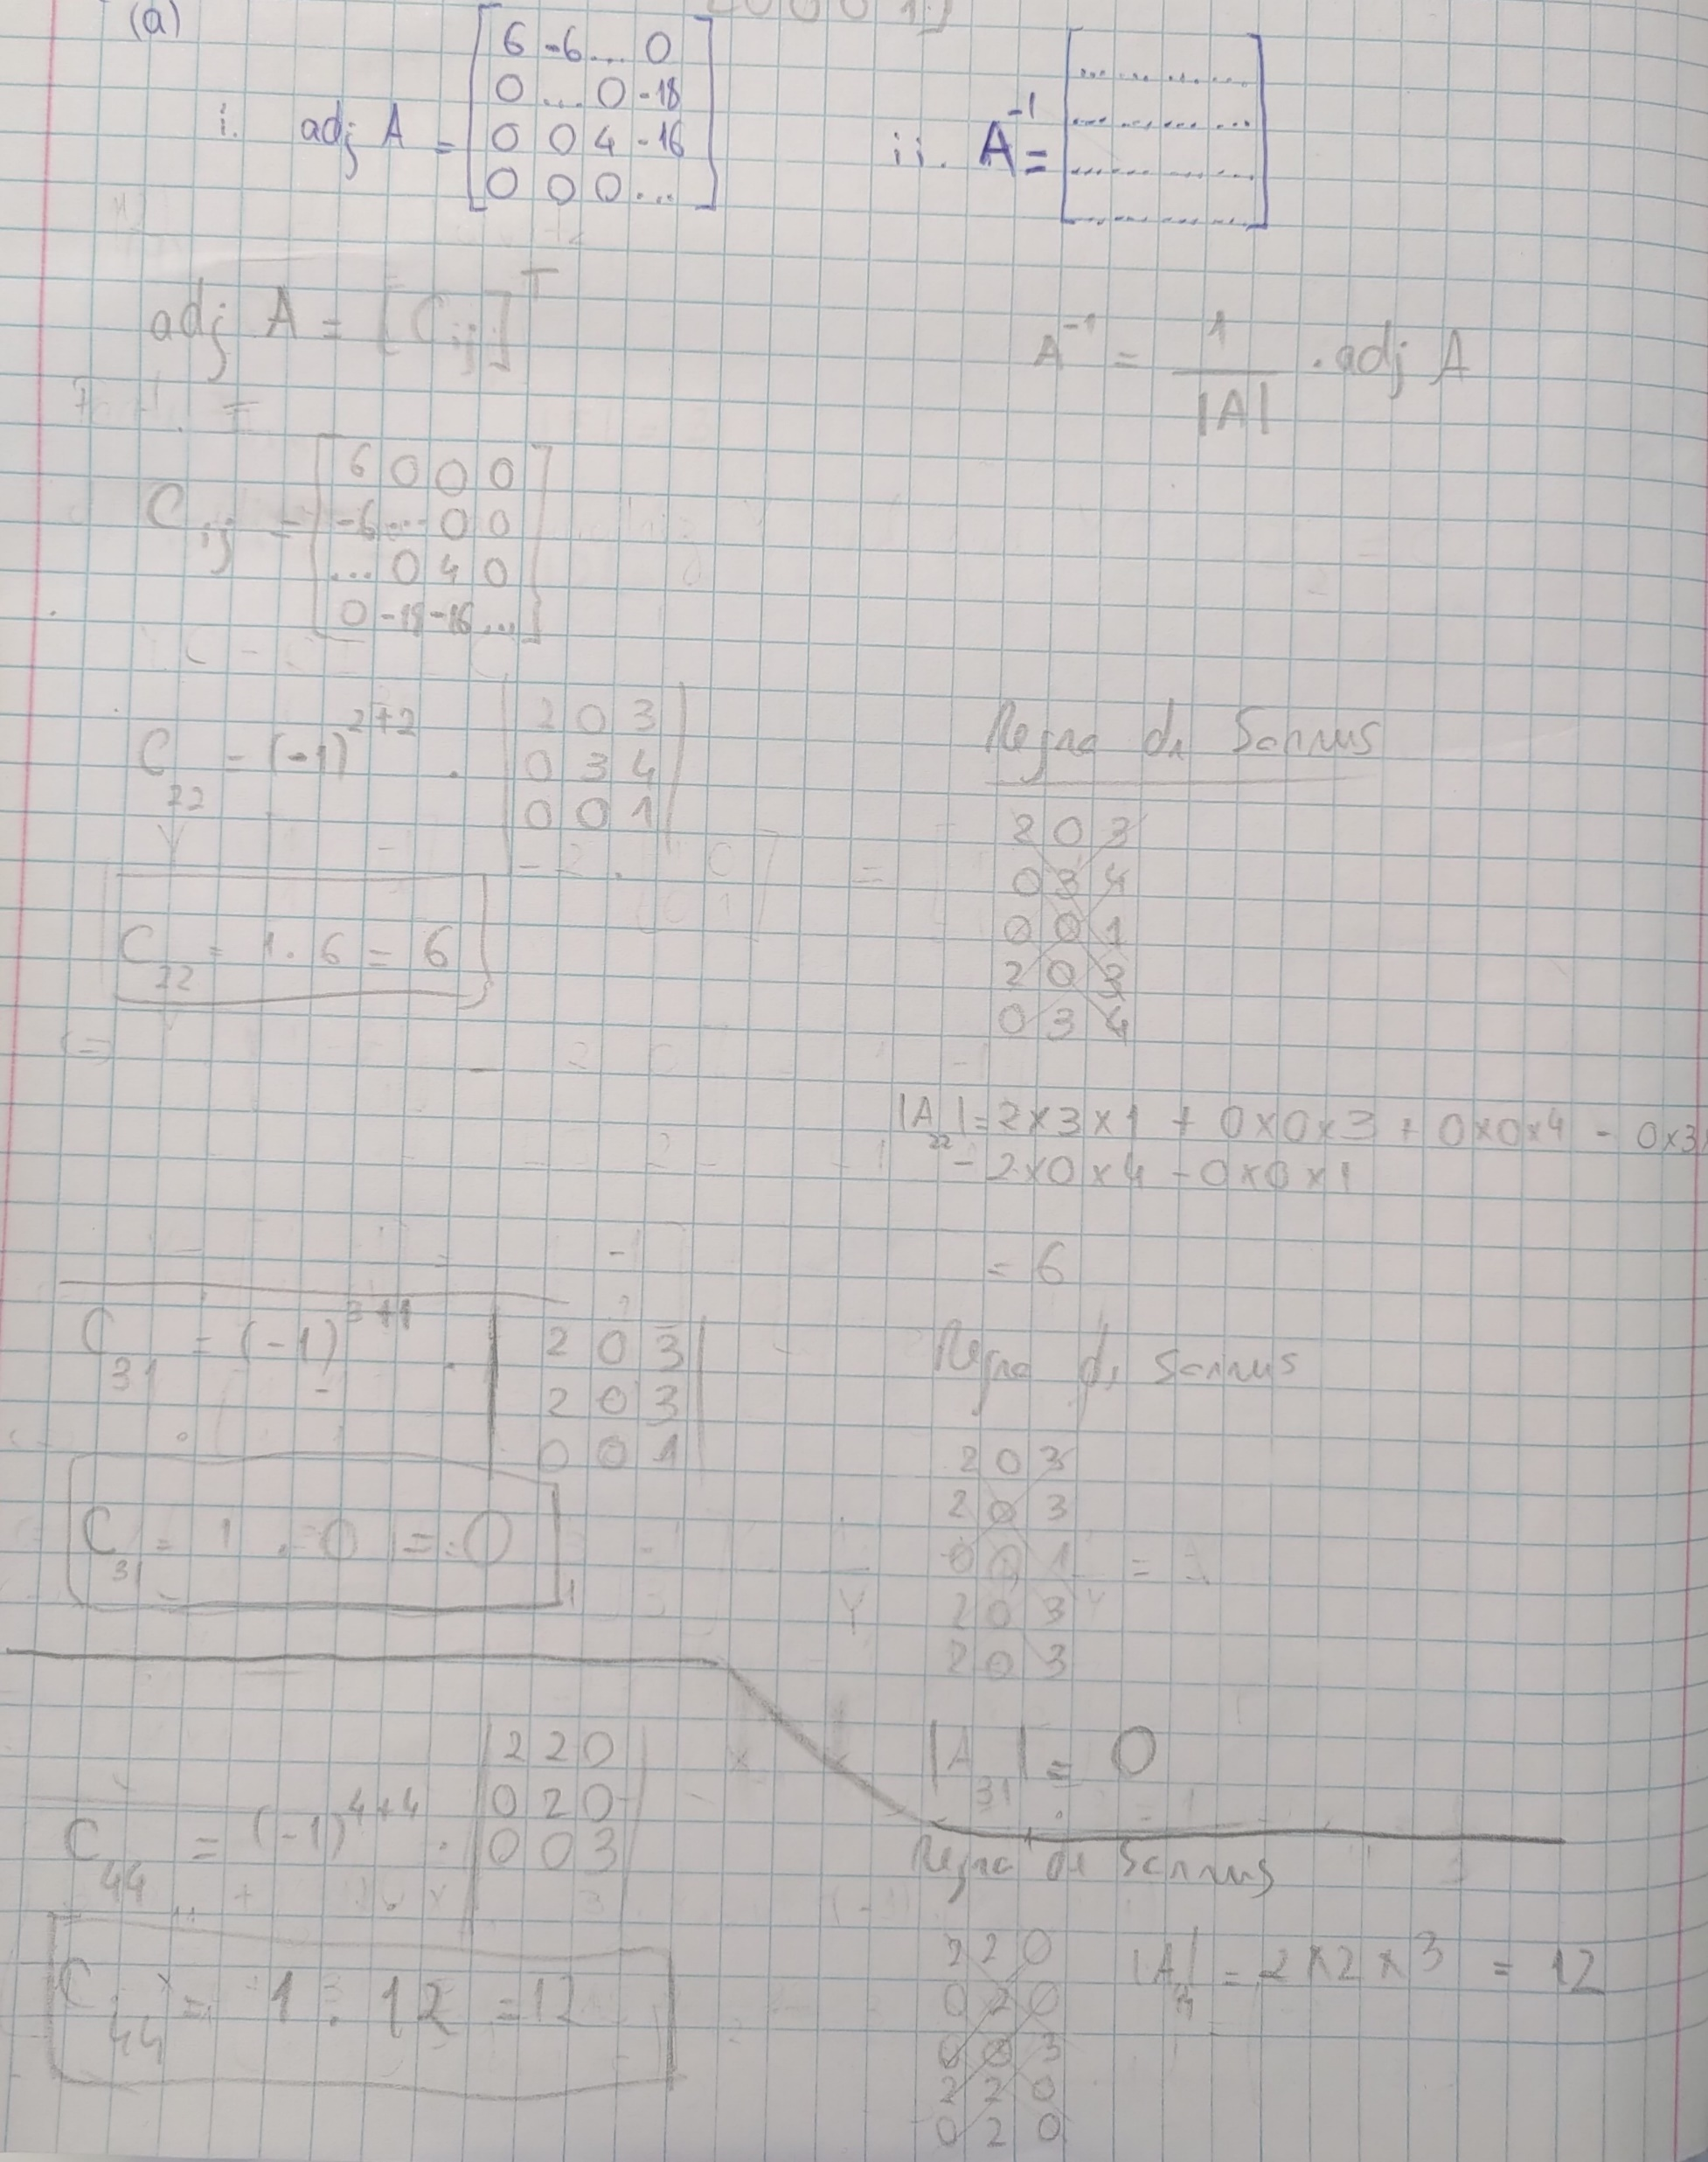 (a)
i. adj A = [6 -6 ... 0
0 ... 0 -18
0 0 4 -16
0 0 0 ...]
ii. A⁻¹ = [... ... ... ...
... ... ... ...
... ... ... ...
... ... ... ...]
adj A = [C_ij]^T
A⁻¹ = 1/|A| . adj A
C_ij = [6 0 0 0
-6 ... 0 0
... 0 4 0
0 -18 -16 ...]
C_22 = (-1)^2+2 . |2 0 3
0 3 4
0 0 1|
C_22 = 1 . 6 = 6
Regra de Sarrus
=
2 0 3
0 3 4
0 0 1
2 0 3
0 3 4
|A_22| = 2×3×1 + 0×0×3 + 0×0×4 - 0×3
- 2×0×4 - 0×0×1
= 6
C_31 = (-1)^3+1 . |2 0 3
2 0 3
0 0 1|
C_31 = 1 . 0 = 0
Regra de Sarrus
2 0 3
2 0 3
0 0 1
2 0 3
2 0 3
|A_31| = 0
C_44 = (-1)^4+4 . |2 2 0
0 2 0
0 0 3|
C_44 = 1 . 12 = 12
Regra de Sarrus
2 2 0
0 2 0
0 0 3
2 2 0
0 2 0
|A_44| = 2×2×3 = 12